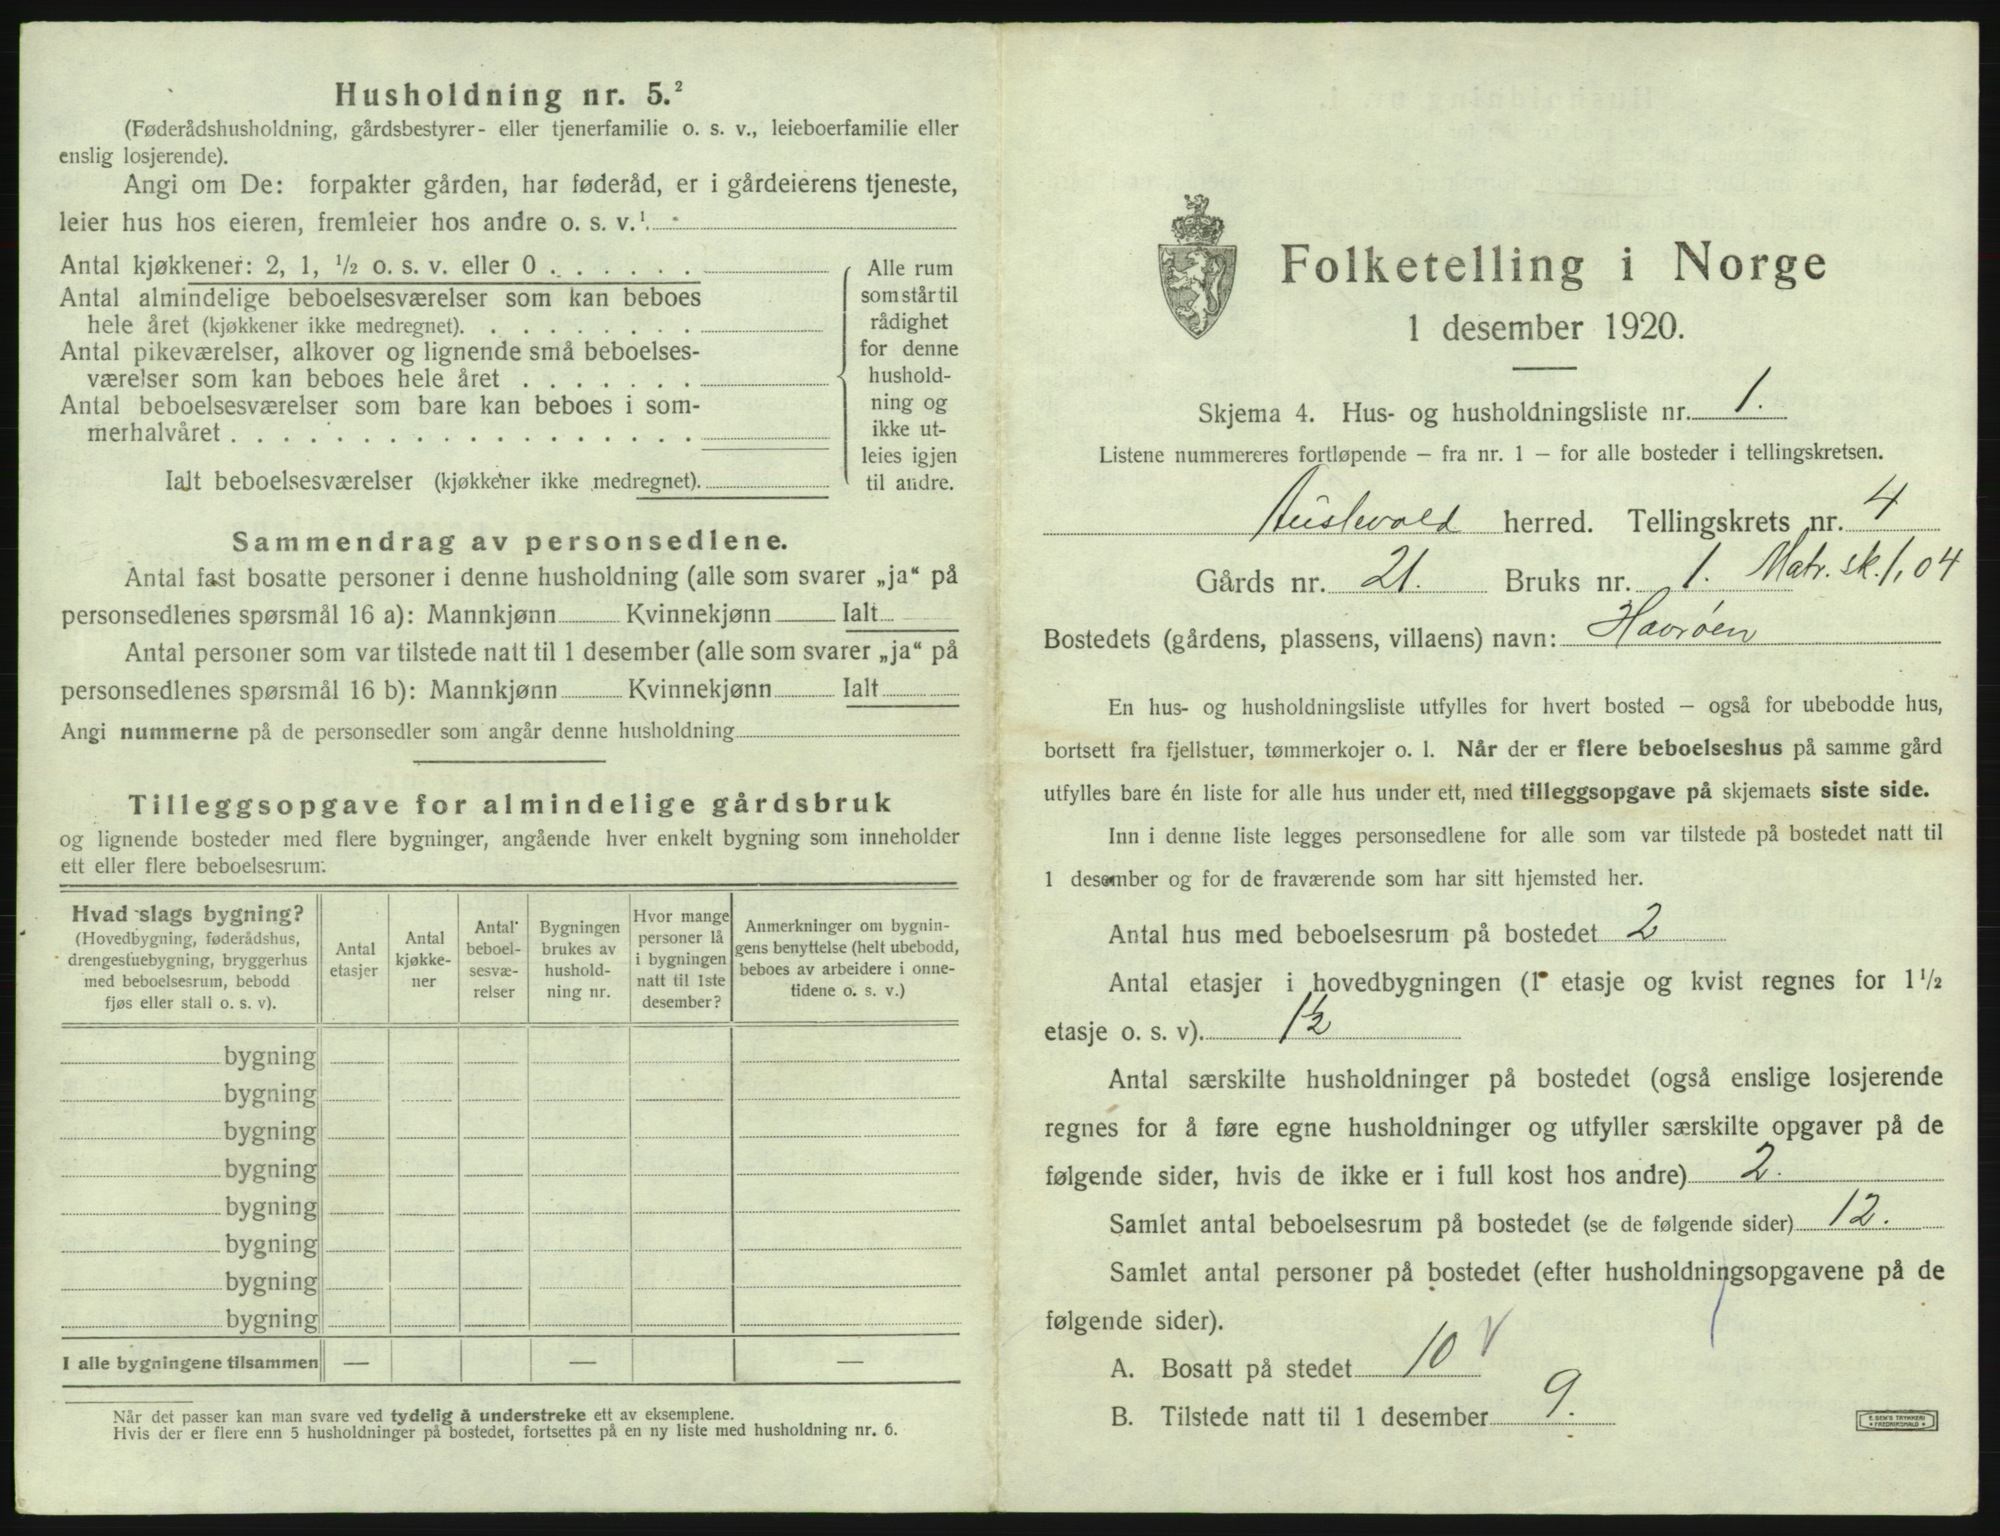 Husholdning nr. 5.²
(Føderådshusholdning, gårdsbestyrer- eller tjenerfamilie o. s. v., leieboerfamilie eller
enslig losjerende).
Angi om De: forpakter gården, har føderåd, er i gårdeierens tjeneste,
leier hus hos eieren, fremleier hos andre o. s. v.¹
Antal kjøkkener: 2, 1, ½ o. s. v. eller 0 . . . . . .
Antal almindelige beboelsesværelser som kan beboes
hele året (kjøkkener ikke medregnet). . . . . . . . .
Antal pikeværelser, alkover og lignende små beboelses-
værelser som kan beboes hele året . . . . . . .
Antal beboelsesværelser som bare kan beboes i som-
merhalvåret . . . . . . . . . . . . . . . . . .
Ialt beboelsesværelser (kjøkkener ikke medregnet).
Alle rum
som står til
rådighet
for denne
hushold-
ning og
ikke ut-
leies igjen
til andre.
Sammendrag av personsedlene.
Antal fast bosatte personer i denne husholdning (alle som svarer „ja“ på
personsedlenes spørsmål 16 a): Mannkjønn Kvinnekjønn Ialt
Antal personer som var tilstede natt til 1 desember (alle som svarer „ja“ på
personsedlenes spørsmål 16 b): Mannkjønn Kvinnekjønn Ialt
Angi nummerne på de personsedler som angår denne husholdning
Tilleggsopgave for almindelige gårdsbruk
og lignende bosteder med flere bygninger, angående hver enkelt bygning som inneholder
ett eller flere beboelsesrum:
Hvad slags bygning?
(Hovedbygning, føderådshus,
drengestuebygning, bryggerhus
med beboelsesrum, bebodd
fjøs eller stall o. s. v).
Antal
etasjer
Antal
kjøkke-
ner
Antal
beboel-
sesvæ-
relser
Bygningen
brukes av
hushold-
ning nr.
Hvor mange
personer lå
i bygningen
natt til 1ste
desember?
Anmerkninger om bygnin-
gens benyttelse (helt ubebodd,
beboes av arbeidere i onne-
tidene o. s. v.)
bygning
bygning
bygning
bygning
bygning
bygning
bygning
bygning
I alle bygningene tilsammen — — —
Når det passer kan man svare ved tydelig å understreke ett av eksemplene.
Hvis der er flere enn 5 husholdninger på bostedet, fortsettes på en ny liste med husholdning nr. 6.
Folketelling i Norge
1 desember 1920.
Skjema 4. Hus- og husholdningsliste nr. 1.
Listene nummereres fortløpende — fra nr. 1 — for alle bosteder i tellingskretsen.
Austevold herred. Tellingskrets nr. 4
Gårds nr. 21. Bruks nr. 1. Matr. sk. 1,04
Bostedets (gårdens, plassens, villaens) navn: Havrøen
En hus- og husholdningsliste utfylles for hvert bosted — også for ubebodde hus,
bortsett fra fjellstuer, tømmerkojer o. l. Når der er flere beboelseshus på samme gård
utfylles bare én liste for alle hus under ett, med tilleggsopgave på skjemaets siste side.
Inn i denne liste legges personsedlene for alle som var tilstede på bostedet natt til
1 desember og for de fraværende som har sitt hjemsted her.
Antal hus med beboelsesrum på bostedet 2
Antal etasjer i hovedbygningen (1 etasje og kvist regnes for 1½
etasje o. s. v). 1½
Antal særskilte husholdninger på bostedet (også enslige losjerende
regnes for å føre egne husholdninger og utfyller særskilte opgaver på de
følgende sider, hvis de ikke er i full kost hos andre) 2.
Samlet antal beboelsesrum på bostedet (se de følgende sider) 12.
Samlet antal personer på bostedet (efter husholdningsopgavene på de
følgende sider).
A. Bosatt på stedet 10 V
B. Tilstede natt til 1 desember 9.
E. SEM'S TRYKKERI
FREDRIKSHALD